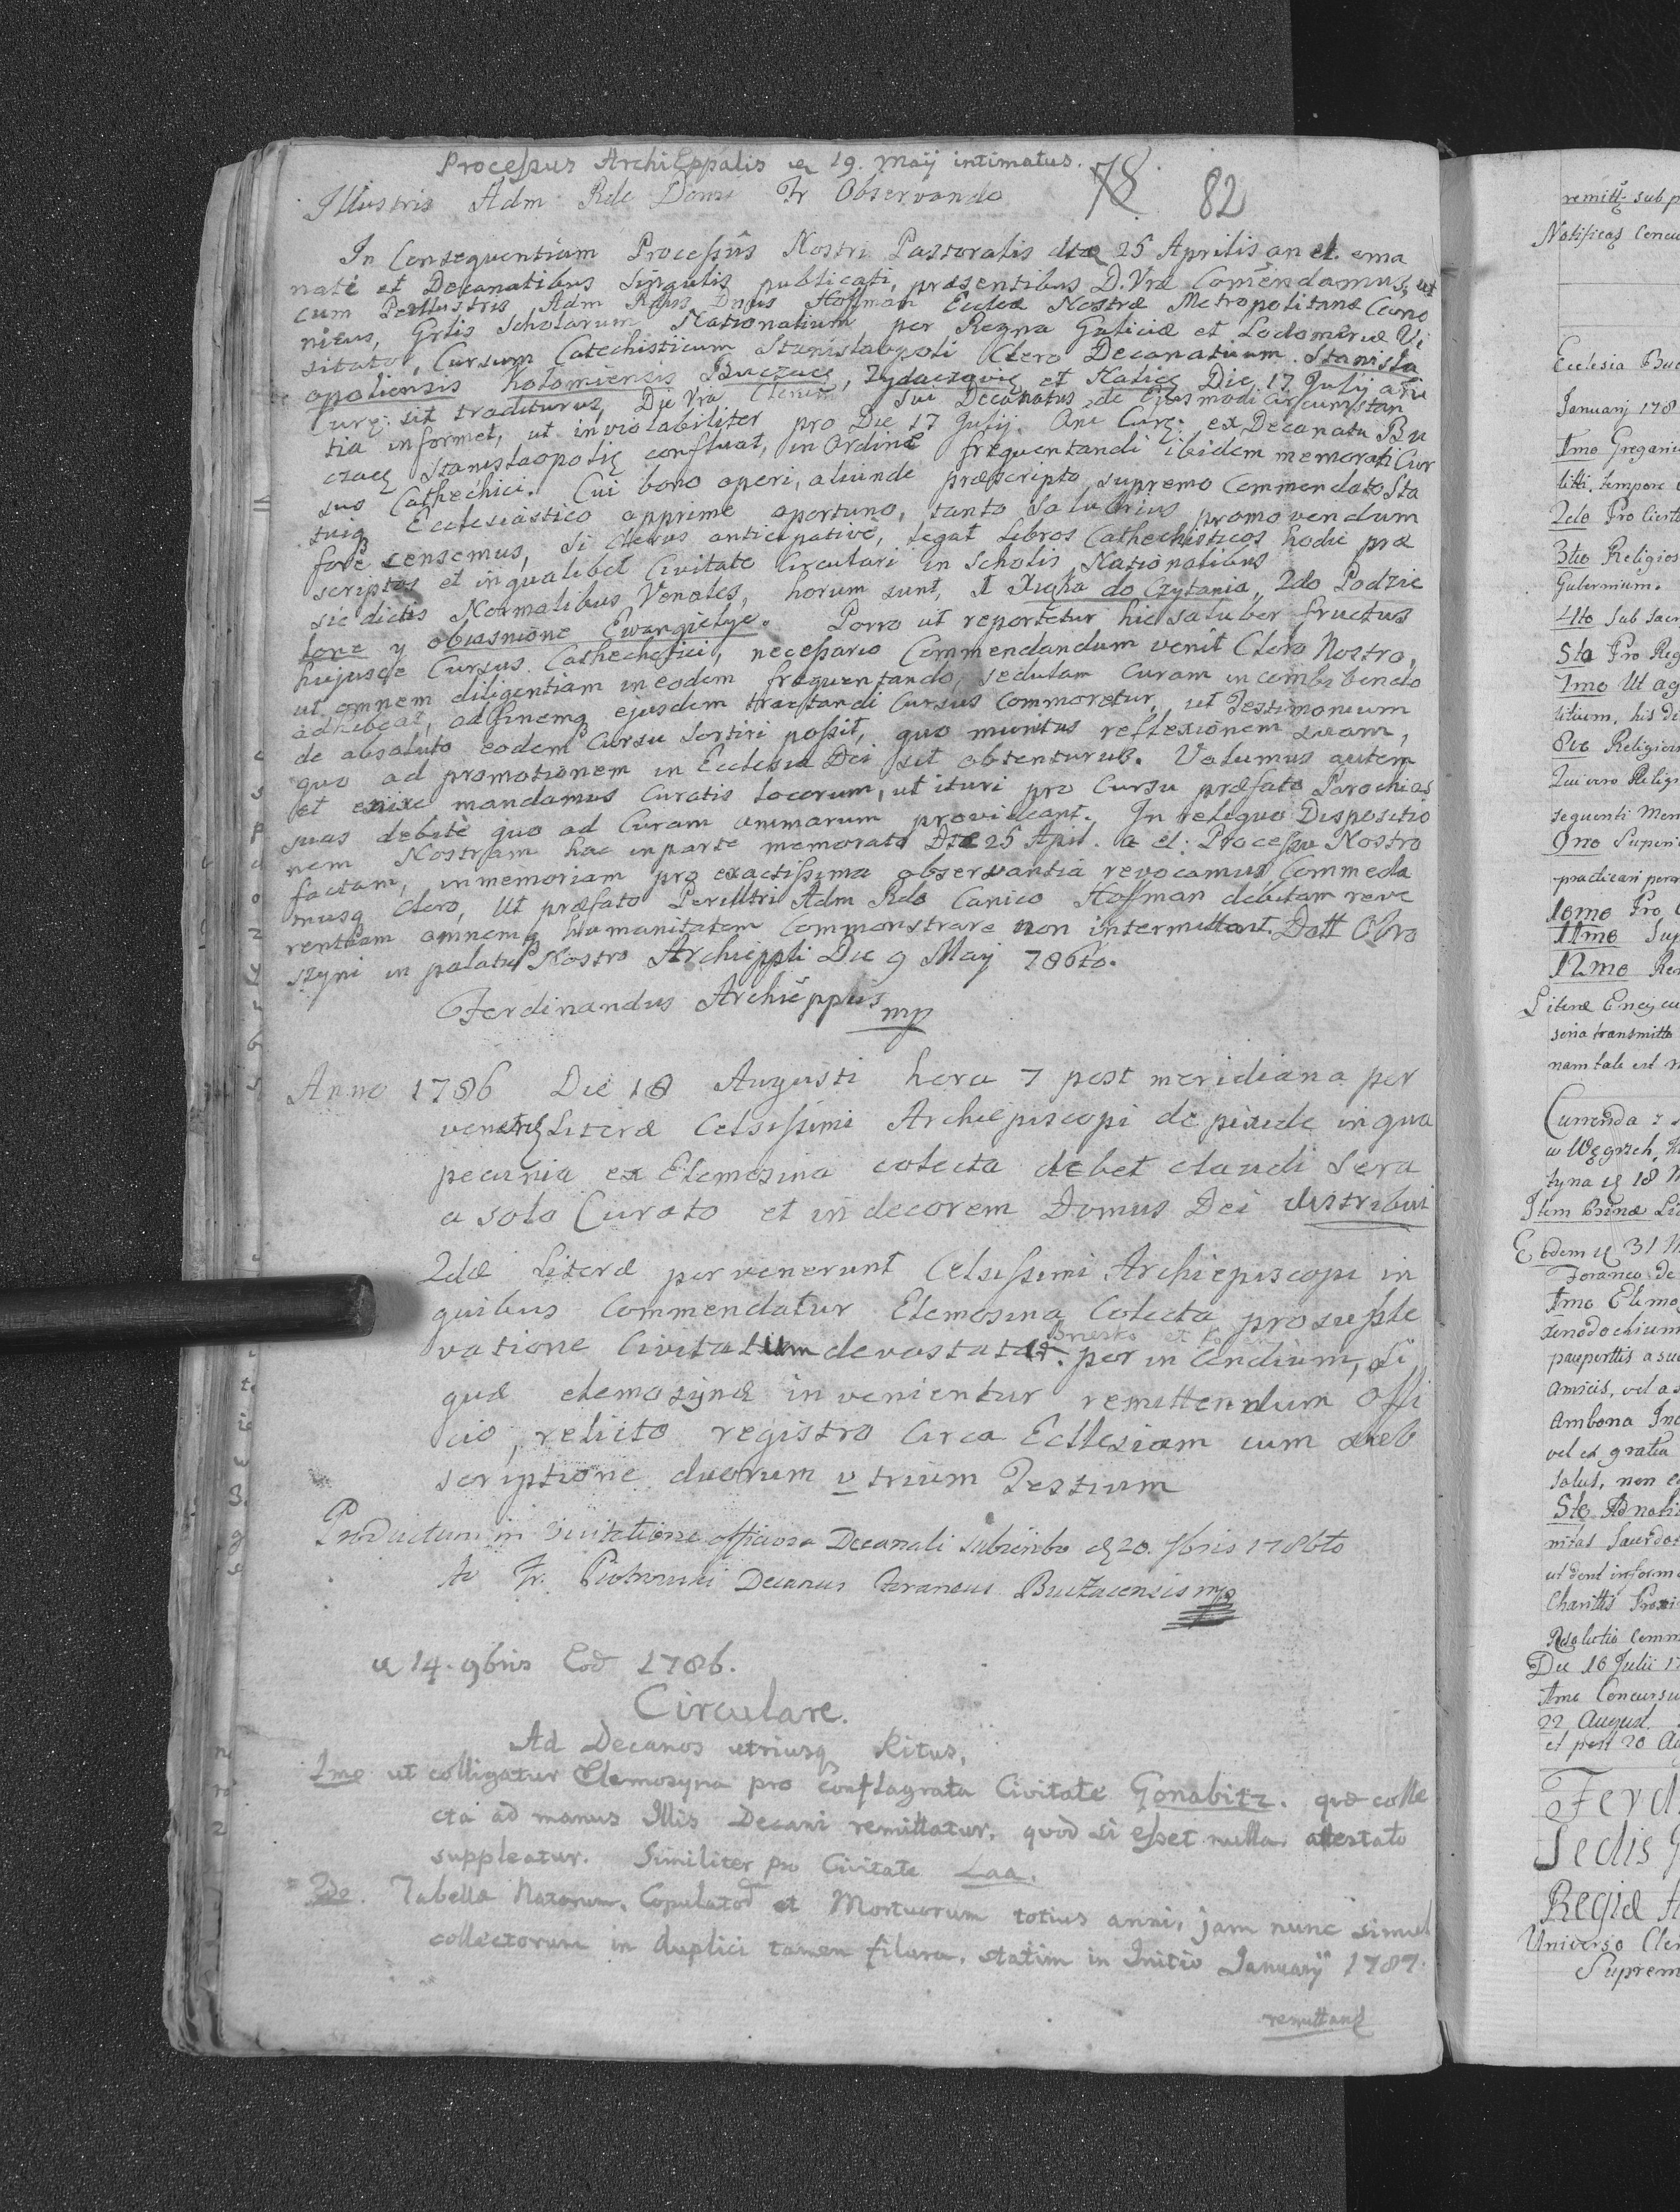 Processus ArchiEppalis 19. Maij intimatus.
78 82
Illustris Adm Rde Domine Fr Observando
In Consequentiam Processûs Nostri Pastoralis dtae 25 Aprilis an el. ema
nati et Decanatibus singulis publicati, praesentibus D. Vrae Comendamus, ut
cum Perillustris Adm Rdus Dnus Hoffman Eccleae Nostrae Metropolitanae Cano
nicus, Grlis Scholarum Nationalium per Regna Galiciae et Lodomeriae Vi
sitator, Cursum Catechisticum Stanislaopoli Clero Decanatuum Stanisla
opoliensis Kolomiensis Buczacz, Zydaczovien et Halicz Die 17 Julij
Curz: sit traditurus, D Vra Clerum sui Decanatus de ejusmodi Circumstan
tia informet, ut inviolabiliter pro Die 17 Julij. Ani Curz: ex Decanatu Bu
czacz Stanislaopolim confluat, in Ordine frequentandi ibidem memorati Cur
sus Cathechici. Cui bono operi, aliunde praescripto supremo Commendato Sta
tuiq Ecclesiastico apprime oportuno, tanto salubrius promovendum
fore censemus, si Clerus anticipative, legat Libros Cathechisticos hodie prae
scriptos et in qualibet Civitate Circulari in Scholis Nationalibus
sic dictis Normalibus Venales, horum sunt, 1 Xięga do Czytania, 2do Podzie
lone y obiasnione Ewangielye. Porro ut reportetur hic saluber fructus
hujusce Cursus Cathechetici, necessario Commendandum venit Clero Nostro,
ut omnem diligentiam in eodem frequentando, sedulam Curam in combibendo
adhibeat, ad finemq ejusdem tractandi Cursus commoretur, ut Testimonium
de absoluto eodem Cursu sortiri possit, quo munitus reflexionem suam,
quo ad promotionem in Ecclesia Dei sit obtenturus. Volumus autem
et enixe mandamus Curatis locorum, ut ituri pro Cursu praefato Parochias
suas debitè quo ad Curam animarum provideant. In reliquo Dispositio
nem Nostram hac in parte memorato Dtae 25 April. a el: Processu Nostro
factam, in memoriam pro exactissima observantia revocamus, Commeda
musq Clero, Ut praefato Perillstri Adm Rdo Canico Hoffman debitam reve
rentiam omnemq humanitatem Commonstrare non intermittant. Datt Obro
szyni in palatio Nostro Archieppli Die 9 Maij 786to.
Ferdinandus Archieppus mp
Anno 1786 Die 18 Augusti hora 7 post meridiana per
venerunt Literae Celsissimi Archiepiscopi de pixide in qua
pecunia ex Elemosina colecta debet claudi Sera
a solo Curato et in decorem Domus Dei distribui
2dae Literae pervenerunt Celsissimi Archiepiscopi in
quibus Commendatur Elemosina Colecta pro suple
Bnesko et
vatione Civitatum devastatar. per in Cendium, Si
quae elemosynae invenientur remittendum Offi
cio, relicto registro Circa Ecllesiam cum sub
scriptione duorum v trium Testium
Productum in visitatione officiosa Decanali subscribo 20. 1786to
Fr. Piotrowski Decanus Foraneus Buczacensis mp
14. 9bris Eod 1786.
Circulare.
Ad Decanos utriusq Ritus,
1mo ut colligatur Elemosyna pro Conflagrata Civitate Gonabitz. quae colle
cta ad manus Illis Decani remittatur. quod si esset nulla attestato
suppleatur. Similiter pro Civitate Laa.
2do. Tabellae Natorum, Copulator et Mortuorum totius anni, jam nunc simul
collectorum in duplici tamen filura. statim in Initio Januarij 1787.
remittand
remitt sub p
Notificas
Ecclesia Buc
Januarij 178
1mo
litti. tempore
2do Pro
3tio Religios
Gubernium.
4to Sub Sacr
5to Pro Reg
7mo Ut ag
8vo Religios
Qui vero Religi
sequenti Men
9no Superi
10mo Pro
11mo Sup
12mo
seria transmitto
nam tale est
Currenda
tyna 18
Item Binae
Eodem 31
Foraneo de
1mo Elemo
xenodochium
amicis, vel a
Ambona
vel ex gratia
salus, non
5to
ut dent inform
Charitis Proxi
Resolutio comm
Die 16 Julii 17
1mo Concursu
22 August
et post 20
Ferd
Sedis
Regiae
Universo Cler
Suprem